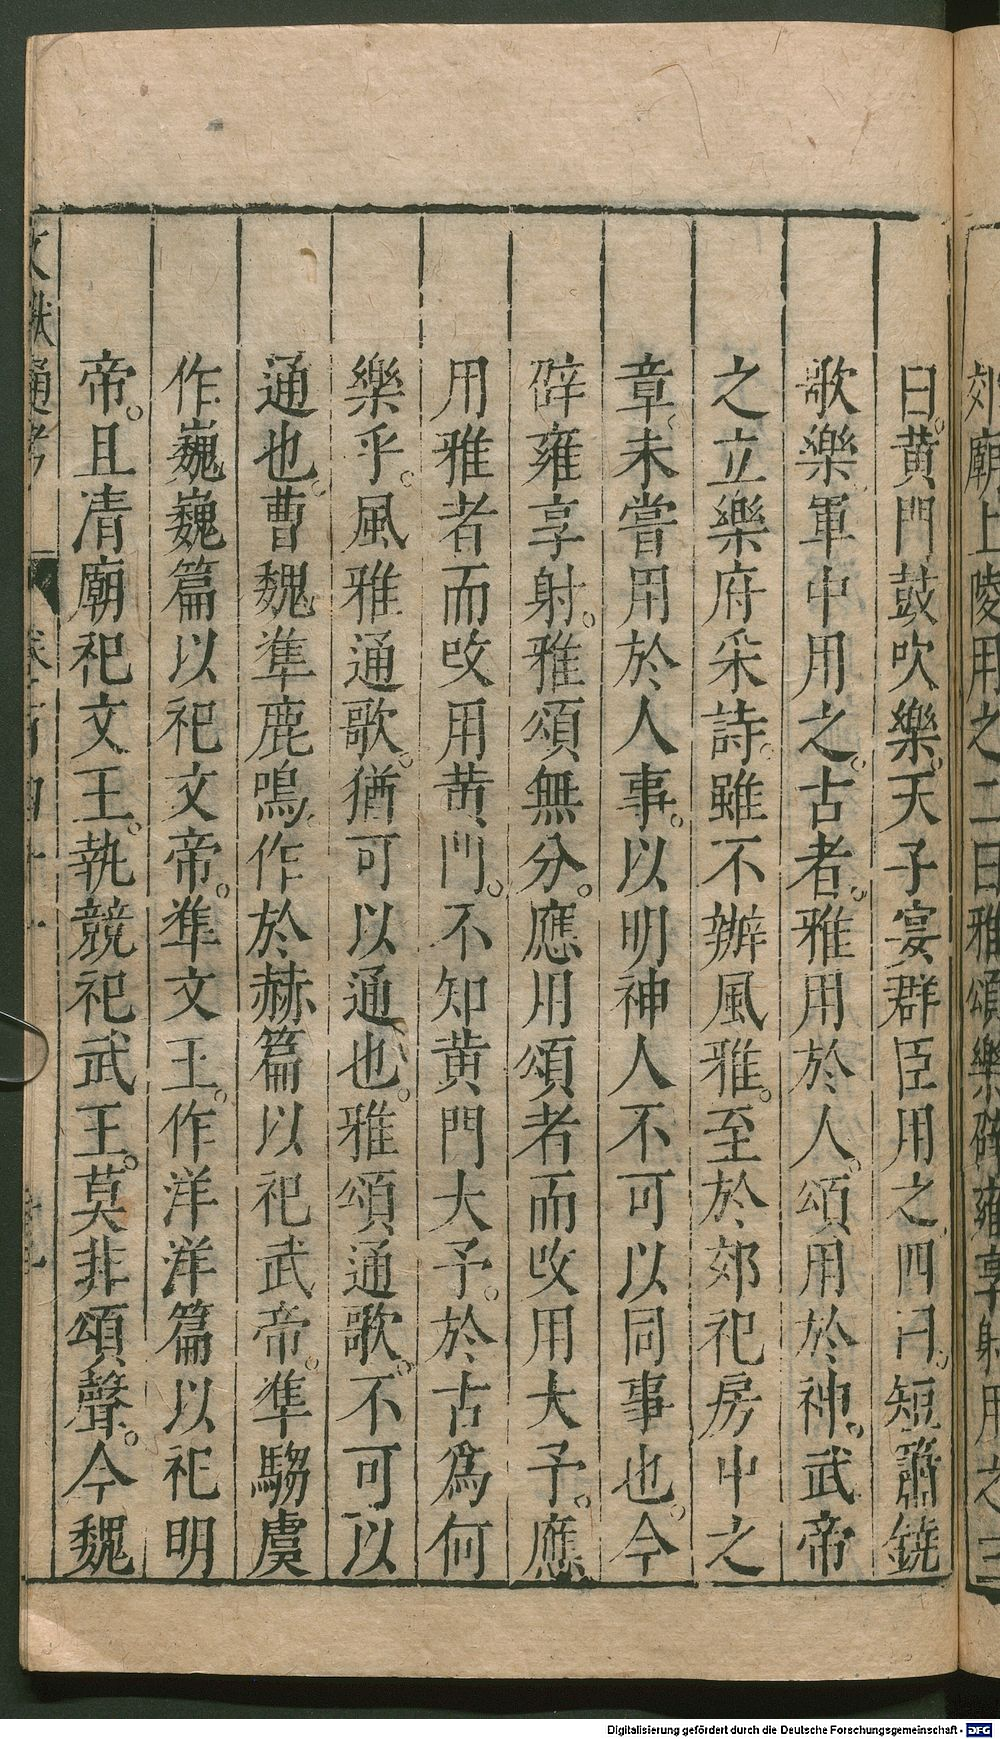 郊廟上陵用之二曰雅頌樂辟雍享射用之三
曰。黄門鼓吹樂。天子宴群臣用之四曰。短簫鐃
歌樂軍中用之。古者。雅用於人。頌用於神。武帝
之立樂府采詩。雖不辧風雅。至於郊祀房中之
章、未嘗用於人事。以明神人不可以同事也。今
辟雍享射。雅頌無分。應用頌者而攺用大予。應
用雅者而攺用黄門。不知黄門大予。於古爲何
樂乎。風雅通歌。猶可以通也。雅頌通歌。不可以
通也。曹魏準鹿鳴。作於赫篇以祀武帝。準騶虞
作巍巍篇以祀文帝。準文王。作洋洋篇以祀明
帝。且清廟祀文王。執競祀武王。莫非頌聲。今魏
文獻通考 卷一百四十一
Digitalisierung gefördert durch die Deutsche Forschungsgemeinschaft - DFG